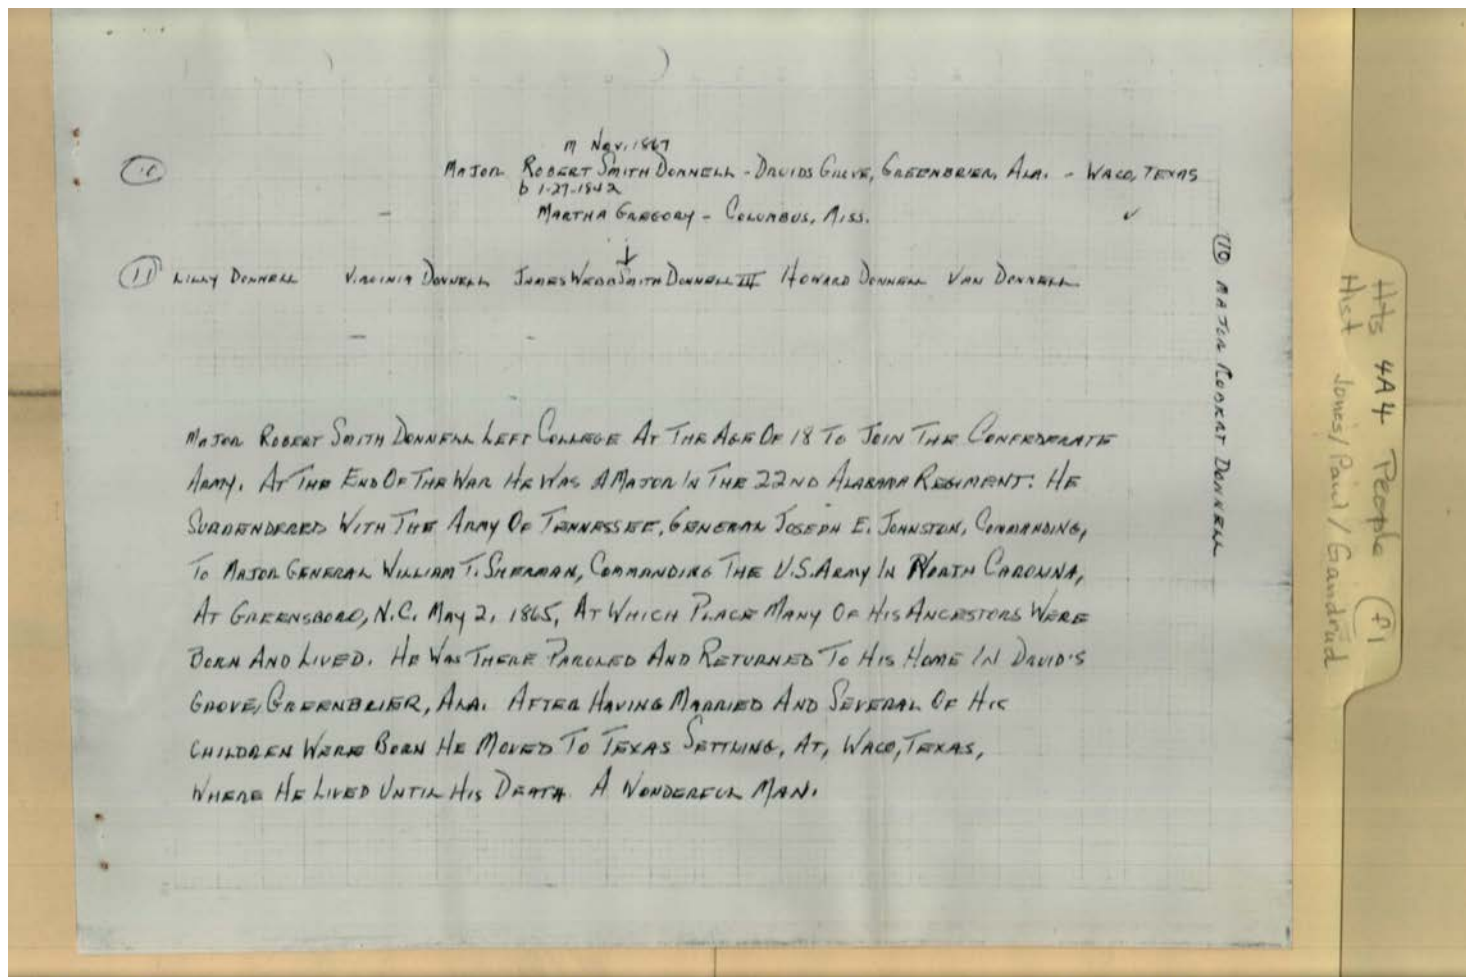 m Nov, 1867
(10)
MAJOR ROBERT SMITH DONNELL - DRUIDS GROVE, GREENBRIER, ALA. - WACO, TEXAS
b 1-27-1842
MARTHA GREGORY - COLUMBUS, MISS. ✓
↓
(11) LILLY DONNELL VIRGINIA DONNELL JAMES WEBB SMITH DONNELL III HOWARD DONNELL VAN DONNELL
MAJOR ROBERT SMITH DONNELL LEFT COLLEGE AT THE AGE OF 18 TO JOIN THE CONFEDERATE
ARMY. AT THE END OF THE WAR HE WAS A MAJOR IN THE 22ND ALABAMA REGIMENT. HE
SURRENDERED WITH THE ARMY OF TENNESSEE, GENERAL JOSEPH E. JOHNSTON, COMMANDING,
TO MAJOR GENERAL WILLIAM T. SHERMAN, COMMANDING THE U.S. ARMY IN NORTH CAROLINA,
AT GREENSBORO, N.C. MAY 2, 1865, AT WHICH PLACE MANY OF HIS ANCESTORS WERE
BORN AND LIVED. HE WAS THERE PAROLED AND RETURNED TO HIS HOME IN DRUID'S
GROVE, GREENBRIER, ALA. AFTER HAVING MARRIED AND SEVERAL OF HIS
CHILDREN WERE BORN HE MOVED TO TEXAS SETTLING, AT, WACO, TEXAS,
WHERE HE LIVED UNTIL HIS DEATH. A WONDERFUL MAN.
(10) MAJOR ROBERT DONNELL
Hts 4A4 People (f1)
Hist Jones/Paul/Gandrud